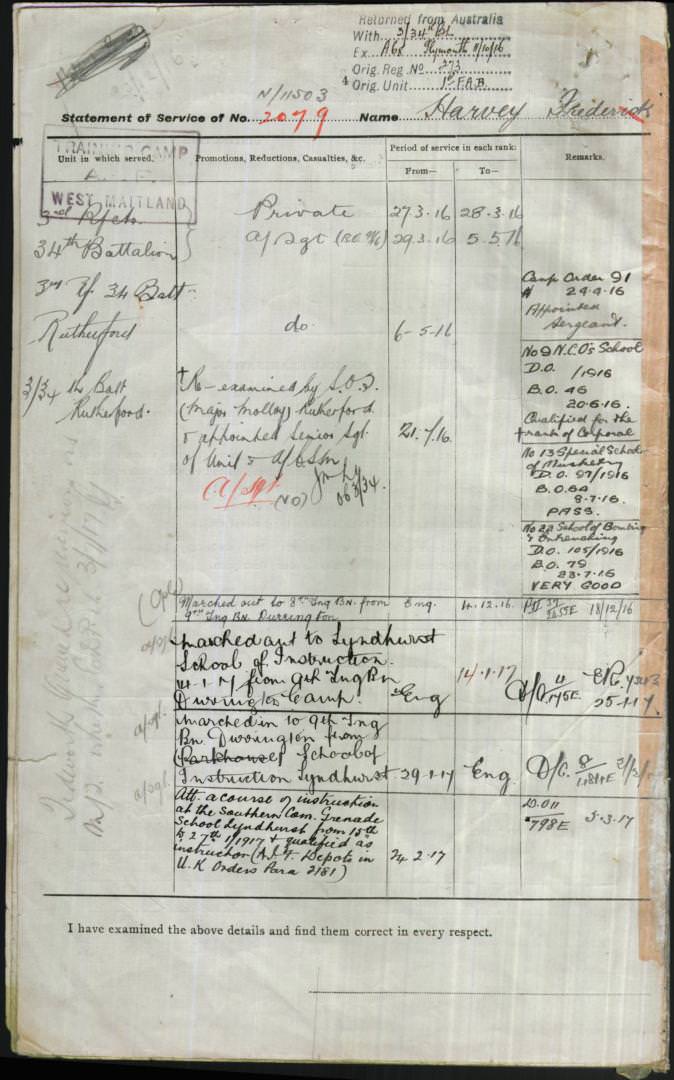 Returned from Australia
With 3/34th Bt.
Ex. A68 Plymouth 11/10/16
Orig. Reg No 273
4 Orig. Unit 1st F.A.B.
N/11503
Statement of Service of No. 2079 Name Harvey Frederick
Unit in which served.
Promotions, Reductions, Casualties, &c.
Period of service in each rank:
From—
To—
Remarks.
TRAINING CAMP
A. I. F.
WEST MAITLAND
3rd Rfcts.
34th Battalion
Private
27.3.16
28.3.16
a/Sgt
29.3.16
5.5.16
3rd Rf. 34 Batt
Rutherford
do
6-5-16
Camp Order 91
24.4.16
Appointed
Sergeant.
No 9 N.C.O's School
D.O. /1916
B.O. 46
20.6.16.
Qualified for the
rank of Corporal
3/34 th Batt
Rutherford.
Re-examined by S.O.I.
(Major Molloy) Rutherford
& appointed Senior Sgt
of Unit & a/CSM
21.7.16
a/Sgt
(NO)
OC 3/34.
No 13 Special School
of Musketry
D.O. 97/1916
B.O. 64
8.7.16.
PASS.
No 22 School of Bombing
& Entrenching
D.O. 105/1916
B.O. 79
23.7.16
VERY GOOD
(Cpl)
Marched out to 8th Tng Bn. from
9th Tng Bn. Durrington
Eng.
4.12.16.
18/12/16
a/sgt
Marched out to Lyndhurst
School of Instruction.
14-1-17 from 9th Tng Bn
Durrington Camp.
Eng
14.1.17
25-1-17
a/sgt.
Marched in to 9th Tng
Bn. Durrington from
Parkhouse School of
Instruction Lyndhurst
29-1-17
Eng.
a/sgt.
Att. a course of instruction
at the Southern Com. Grenade
School Lyndhurst from 15th
to 27th 1/1917 & qualified as
instructor (A.I.F. Depots in
U.K Orders Para 2181)
24.2.17
D.O 11
798E
5.3.17
I have examined the above details and find them correct in every respect.